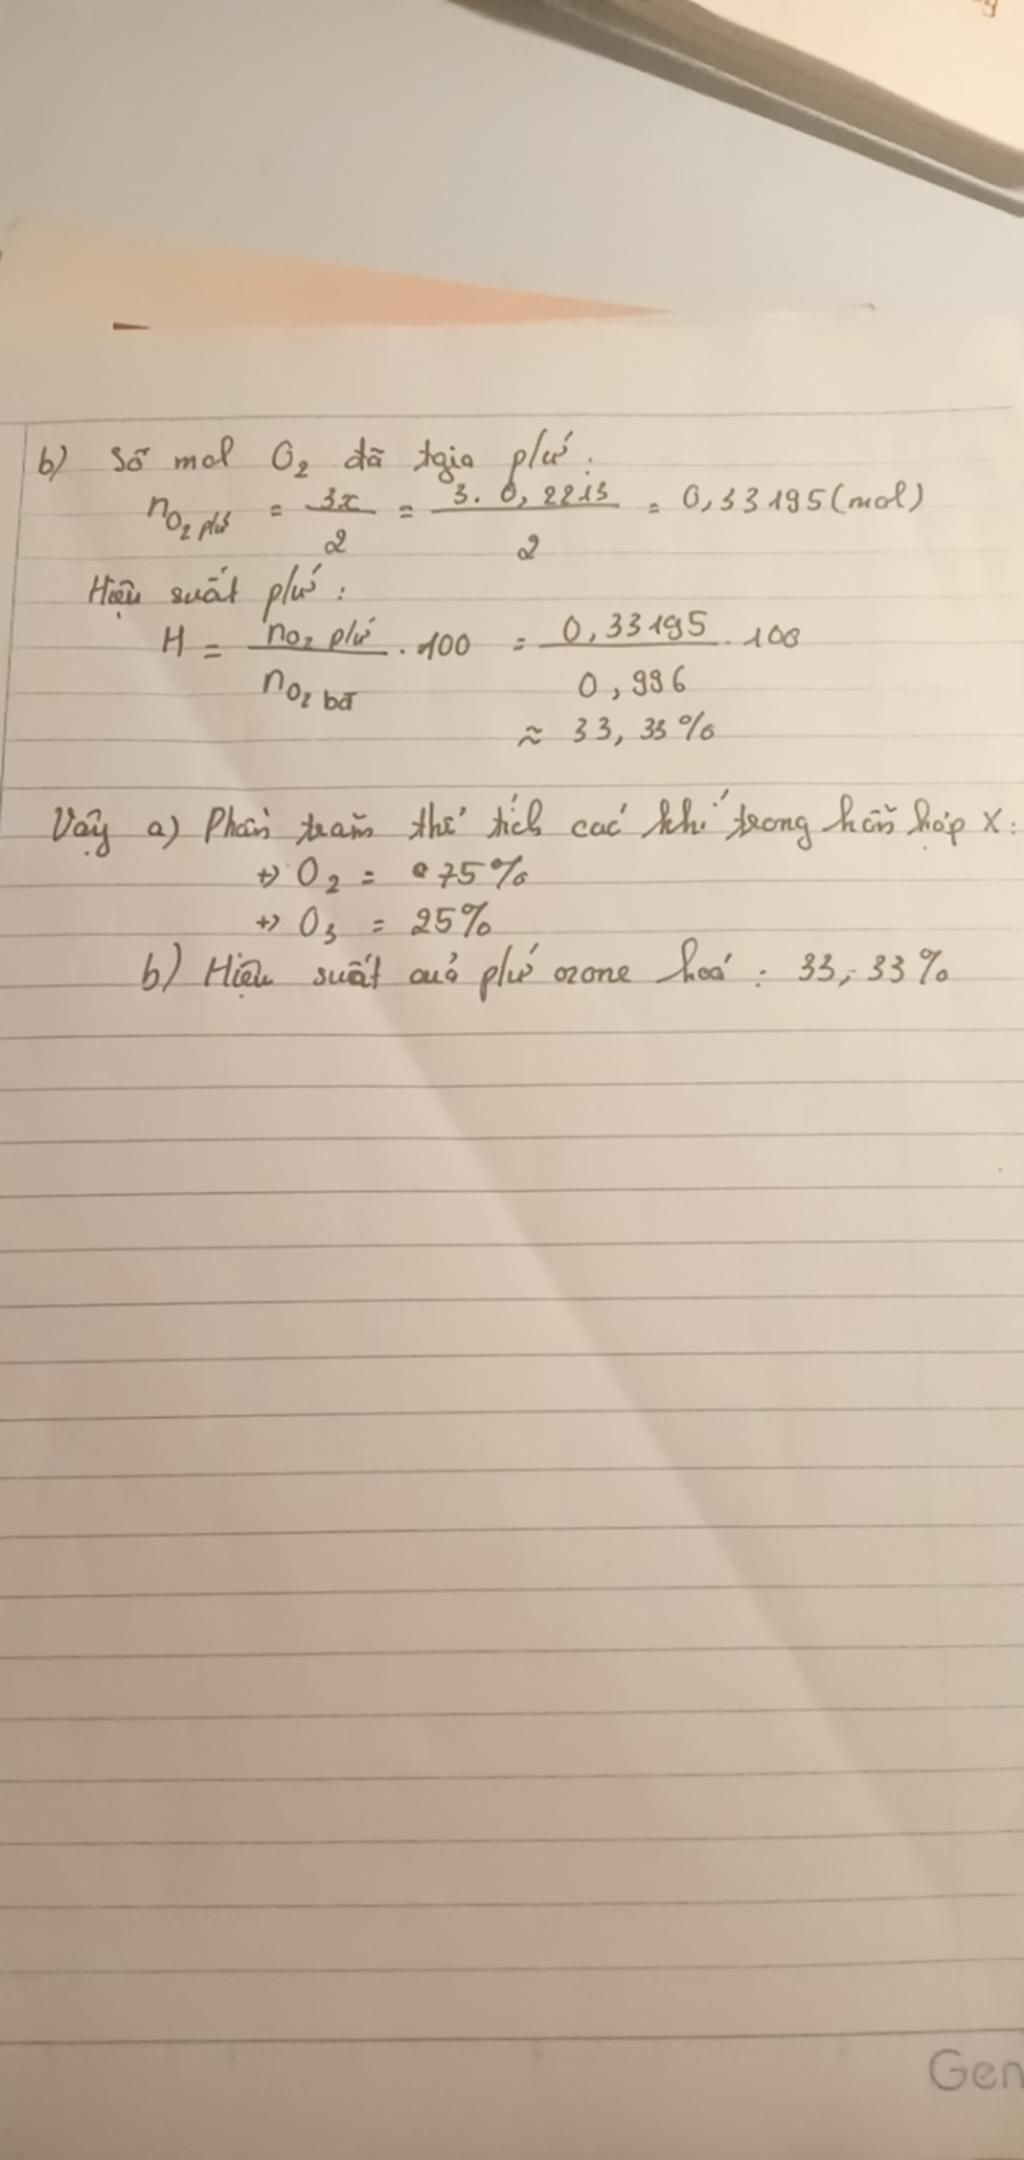 b) Số mol O₂ đã tgia p/ứ.
nO₂ p/ứ = 3x/2 = 3. 0,2213/2 = 0,33195 (mol)
Hiệu suất p/ứ :
H = nO₂ p/ứ/nO₂ bđ . 100 = 0,33195/0,996 . 100
≈ 33, 33 %
Vậy a) Phần trăm thể tích các khí trong hỗn hợp X :
+) O₂ = 75%
+) O₃ = 25%
b) Hiệu suất của p/ứ ozone hoá : 33, 33 %
Gen